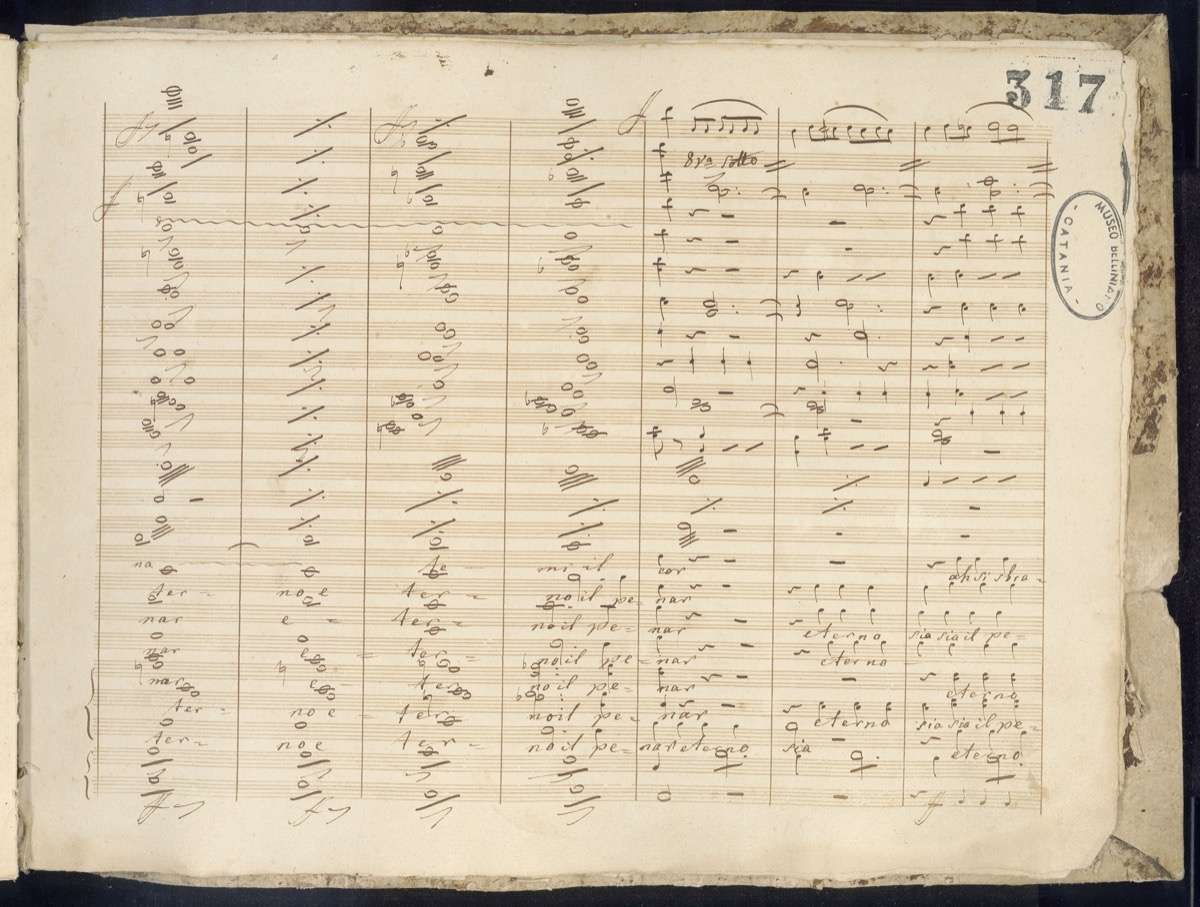 317
MUSEO BELLINIANO
- CATANIA -
8va sotto
na te mi il cor ah si sbra=
ter= no e ter= no il pe= nar
nar e= ter= no il pe= nar eterno sia sia il pe=
nar e= ter= no il pe= nar eterno
nar e= ter= no il pe= nar eterno
ter= no e= ter= no il pe= nar eterno sia sia il pe=
ter= no e ter= no il pe= nar eterno sia eterno